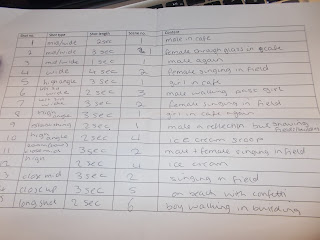 Shot no. Shot type Shot length Scene no. Content
1 mid/wide 2sec 1 male in cafe
2 mid/wide 3 sec 1 female through glass in cafe
3 mid/wide 1 sec 1 male again
4 wide 4 sec 2 female singing in field
5 h.angle 3 sec 1 girl in cafe
6 2 sec 3 male walking past girl
7 3 sec 2 female singing in field
8 high 3 sec 1 girl in cafe again
9 2 sec 1 male's reflection but showing
10 high angle 2 sec 4 ice cream scoop
11 close mid 3 sec 2 male + female singing in field
high 2 sec 4 ice cream
3 close mid 3 sec 2 singing in field
close up 3 sec 5 on beach with confetti
long shot 2 sec 6 boy walking in building